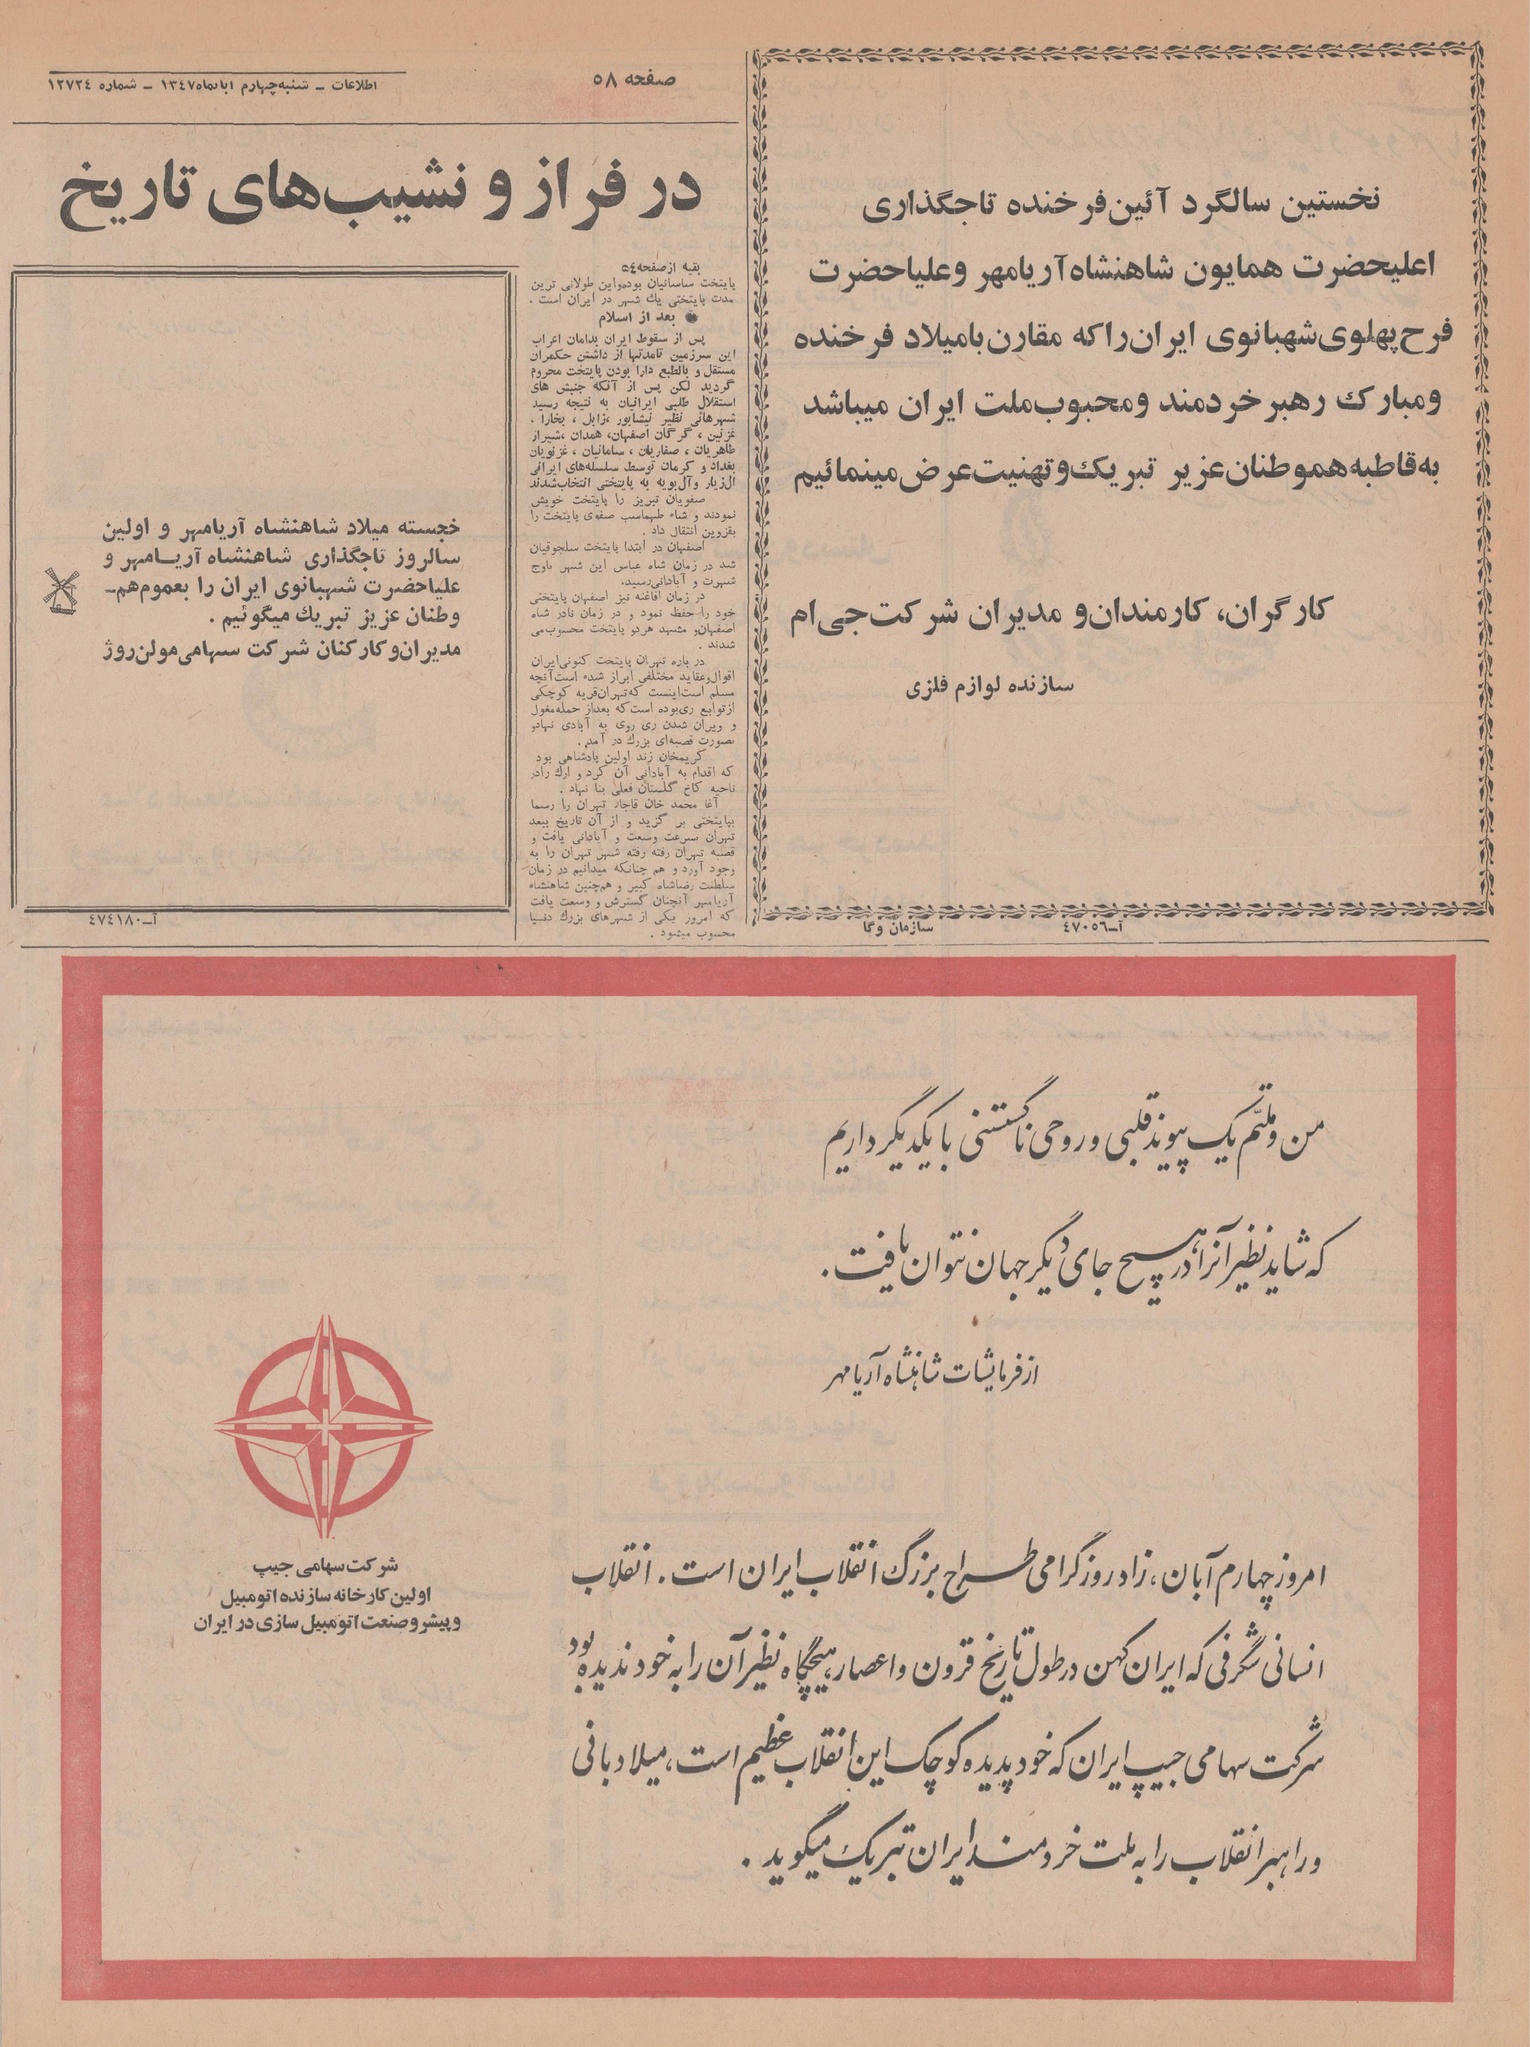 صفحه ۵۸
اطلاعات ـ شنبه چهارم آبانماه ۱۳۴۷ ـ شماره ۱۲۷۲۴
نخستین سالگرد آئین فرخنده تاجگذاری
اعلیحضرت همایون شاهنشاه آریامهر و علیاحضرت
فرح پهلوی شهبانوی ایران را که مقارن بامیلاد فرخنده
و مبارک رهبر خردمند و محبوب ملت ایران میباشد
به قاطبه هموطنان عزیر تبریک و تهنیت عرض مینمائیم
کارگران، کارمندان و مدیران شرکت جی ام
سازنده لوازم فلزی
آ-۴۷۰۵۶
سازمان وگا
در فراز و نشیب‌های تاریخ
بقیه از صفحه ۵۴
پایتخت ساسانیان بوده و این طولانی ترین
مدت پایتختی یك شهر در ایران است .
● بعد از اسلام
پس از سقوط ایران بدامان اعراب
این سرزمین تا مدتها از داشتن حکمران
مستقل و بالطبع دارا بودن پایتخت محروم
گردید لکن پس از آنکه جنبش های
استقلال طلبی ایرانیان به نتیجه رسید
شهرهائی نظیر نیشابور ، زابل ، بخارا ،
غزنین ، گرگان اصفهان، همدان ،شیراز
طاهریان ، صفاریان ، سامانیان ، غزنویان
بغداد و کرمان توسط سلسله‌های ایرانی
ال‌زیار و آل‌بویه به پایتختی انتخاب شدند
صفویان تبریز را پایتخت خویش
نمودند و شاه طهماسب صفوی پایتخت را
بقزوین انتقال داد .
اصفهان در ابتدا پایتخت سلجوقیان
شد در زمان شاه عباس این شهر باوج
شهرت و آبادانی رسید.
در زمان افاغنه نیز اصفهان پایتختی
خود را حفظ نمود و در زمان نادر شاه
اصفهان و مشهد هر دو پایتخت محسوب می
شدند .
در باره تهران پایتخت کنونی ایران
اقوال و عقاید مختلفی ابراز شده است آنچه
مسلم است اینست که تهران قریه کوچکی
از توابع ری بوده است که بعد از حمله مغول
و ویران شدن ری روی به آبادی نهاد و
بصورت قصبه‌ای بزرك در آمد .
کریمخان زند اولین پادشاهی بود
که اقدام به آبادانی آن کرد و ارك را در
ناحیه کاخ گلستان فعلی بنا نهاد .
آغا محمد خان قاجار تهران را رسما
بپایتختی بر گزید و از آن تاریخ ببعد
تهران بسرعت وسعت و آبادانی یافت و
قصبه تهران رفته رفته شهر تهران را به
وجود آورد و هم چنانکه میدانیم در زمان
سلطنت رضاشاه کبیر و هم‌چنین شاهنشاه
آریامهر آنچنان گسترش و وسعت یافت
که امروز یکی از شهرهای بزرك دنیا
محسوب میشود .
خجسته میلاد شاهنشاه آریامهر و اولین
سالروز تاجگذاری شاهنشاه آریامهر و
علیاحضرت شهبانوی ایران را بعموم هم‌ـ
وطنان عزیز تبریك میگوئیم .
مدیران و کارکنان شرکت سهامی مولن‌روژ
آ-۴۷۴۱۸۰
من و ملتم یک پیوند قلبی و روحی ناگسستنی با یکدیگر داریم
که شاید نظیر آنرا در هیچ جای دیگر جهان نتوان یافت .
از فرمایشات شاهنشاه آریامهر
امروز چهارم آبان ، زادروز گرامی طراح بزرگ انقلاب ایران است . انقلاب
انسانی شگرفی که ایران کهن در طول تاریخ قرون و اعصار ، هیچگاه نظیر آن را به خود ندیده بود
شرکت سهامی جیپ ایران که خود پدیده کوچک این انقلاب عظیم است ، میلاد بانی
و راهبر انقلاب را به ملت خردمند ایران تبریک میگوید .
شرکت سهامی جیپ
اولین کارخانه سازنده اتومبیل
و پیشرو صنعت اتومبیل سازی در ایران